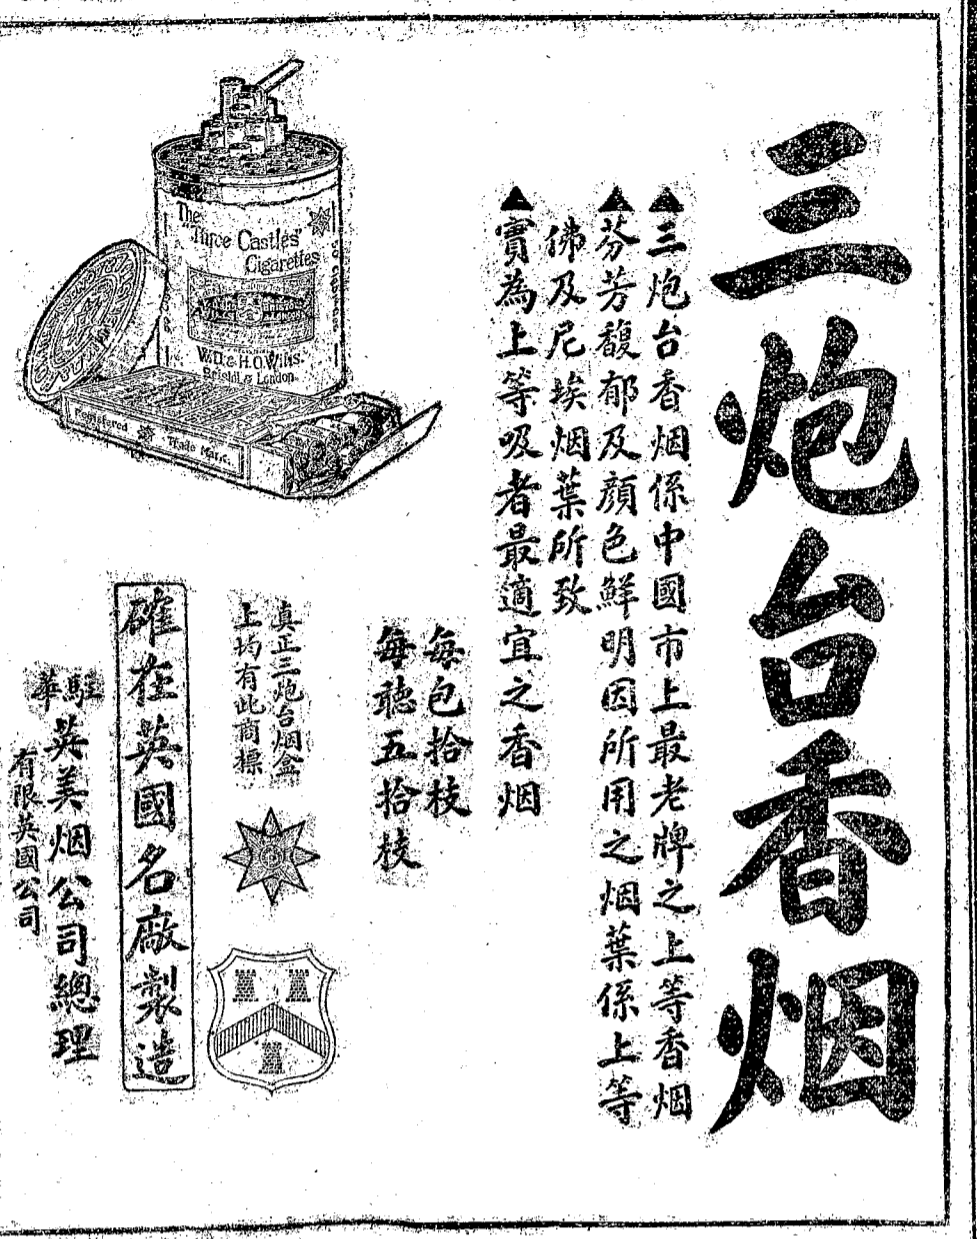 三炮台香烟
▲三炮台香烟係中國市上最老牌之上等香烟
▲芬芳馥郁及顏色鮮明因所用之烟葉係上等
佛及尼埃烟葉所致
▲實為上等吸者最適宜之香烟
每包拾枝
每聽五拾枝
真正三炮台烟盒
上均有此商標
確在英國名廠製造
駐華
英美烟公司總理
有限英國公司
The
"Three Castles"
Cigarettes
W.D. & H.O. Wills.
Bristol & London.
Registered Trade Mark.